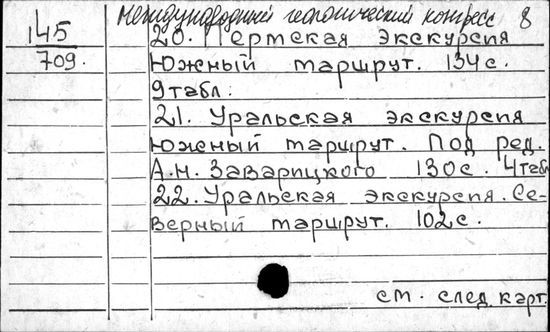 Международный геологический конгресс 8
145
709.
20. Пермская экскурсия
Южный маршрут. 134 с.
9табл.
21. Уральская экскурсия
Южный маршрут. Под ред.
А.Н. Заварицкого 130с. 4табл
22. Уральская экскурсия. Се-
верный маршрут. 102с.
см. след. карт.